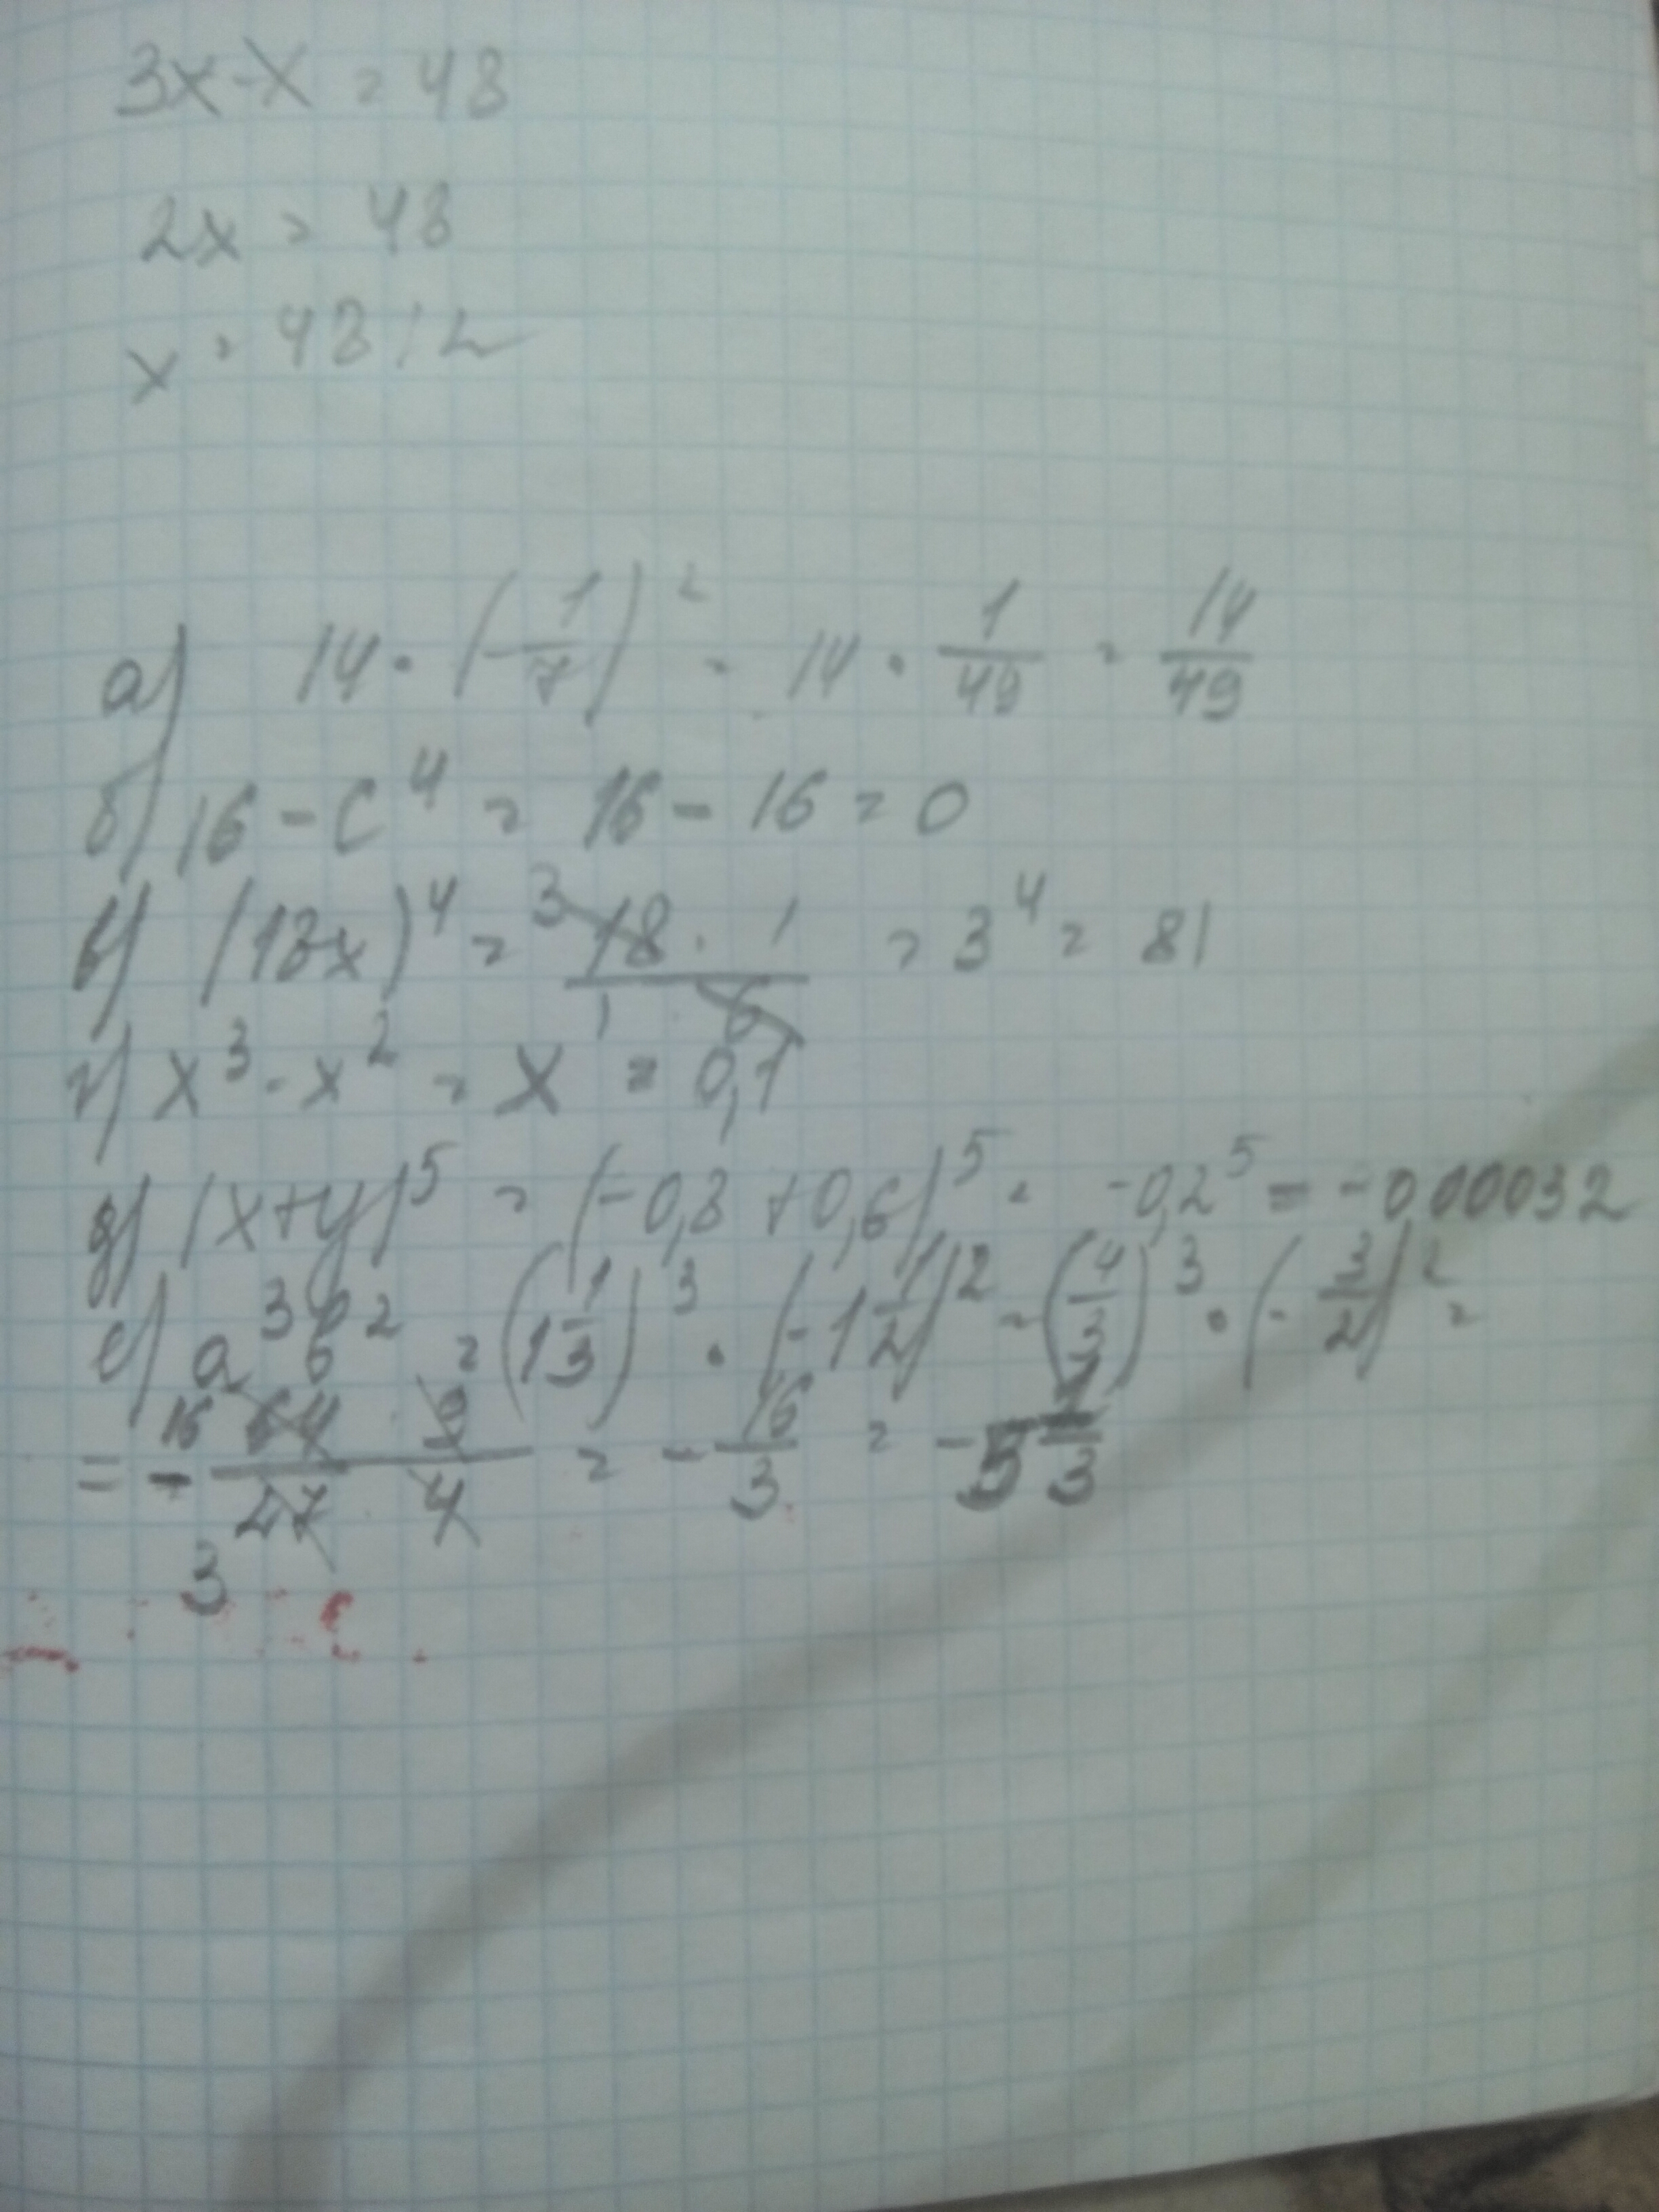 3x-x = 48
2x = 48
x = 48:2
а) 14 · (-1/7)² = 14 · 1/49 = 14/49
б) 16 - c⁴ = 16 - 16 = 0
в) (18x)⁴ = 3 18 · 1 / 1 6 = 3⁴ = 81
г) x³ - x² = x = 0,1
д) (x+y)⁵ = (-0,8 + 0,6)⁵ = -0,2⁵ = -0,00032
е) a³b² = (1 1/3)³ · (-1 1/2)² = (4/3)³ · (-3/2)² =
= - 16 64 · 9 / 3 27 · 4 = - 16/3 = -5 1/3